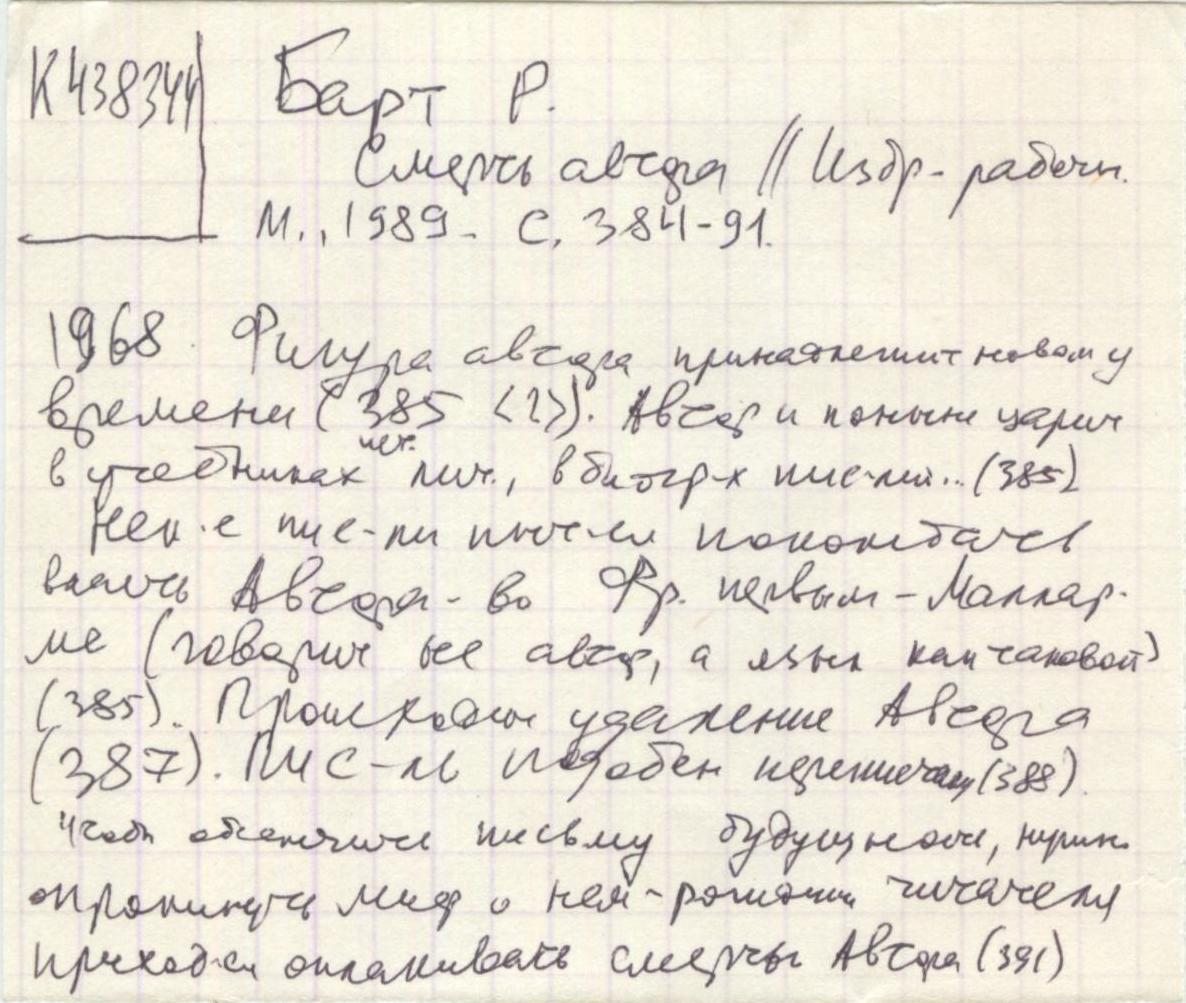 К438344
Барт Р.
Смерть автора // Избр. работы.
М., 1989. С. 384-91.
1968. Фигура автора принадлежит новому
времени (385 <2>). Автор и поныне царит
в учебниках ист. лит., в биогр-х пис-лей... (385)
Нек-е пис-ли пыт-сь поколебать
власть Автора - во Фр. первым - Маллар-
ме (говорит не автор, а язык как таковой)
(385). Происходит удаление Автора
(387). Пис-ль подобен переписчику (388).
Чтобы обеспечить письму будущность, нужно
опрокинуть миф о нем - рождение читателя
приход-ся оплакивать смертью Автора (391)